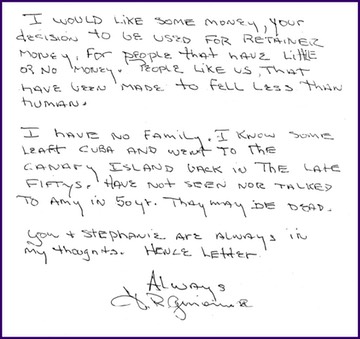 I WOULD LIKE SOME MONEY, YOUR
DECISION TO BE USED FOR RETAINER
MONEY, FOR PEOPLE THAT HAVE LITTLE
OR NO MONEY. PEOPLE LIKE US, THAT
HAVE BEEN MADE TO FELL LESS THAN
HUMAN.
I HAVE NO FAMILY. I KNOW SOME
LEAFT CUBA AND WENT TO THE
CANARY ISLAND BACK IN THE LATE
FIFTYS. HAVE NOT SEEN NOR TALKED
TO AMY IN 50 YR. THAY MAY BE DEAD.
YOU & STEPHANIE ARE ALWAYS IN
MY THOUGHTS. HENCE LETTER.
ALWAYS